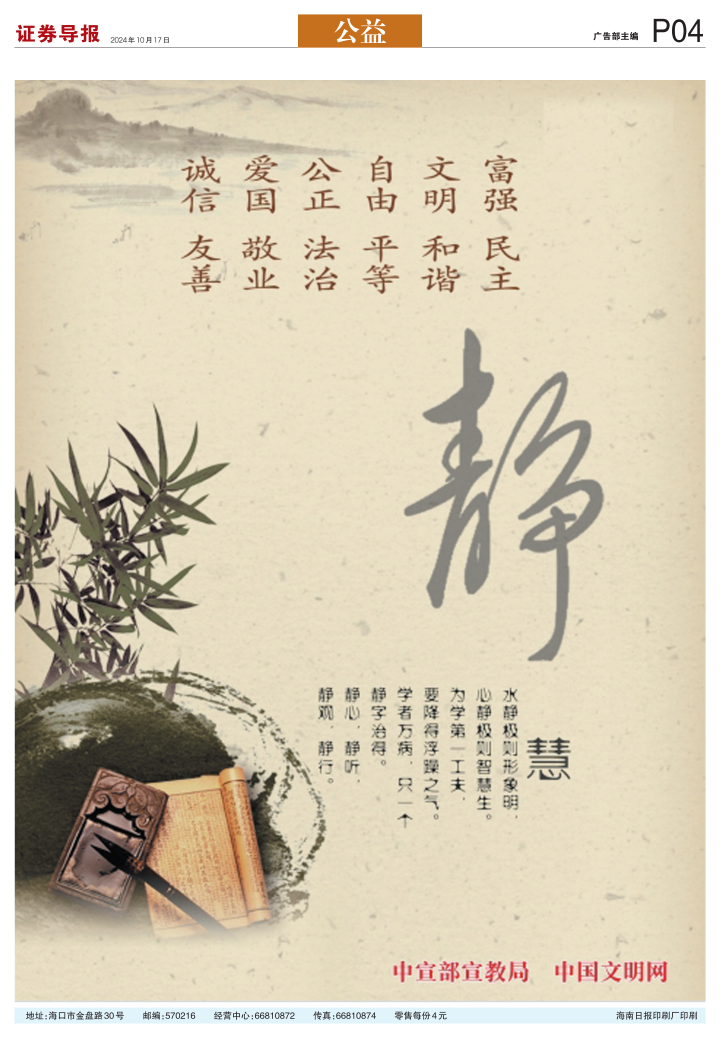 证券导报
2024年10月17日
公益
广告部主编
P04
富强 民主
文明 和谐
自由 平等
公正 法治
爱国 敬业
诚信 友善
静
慧
水静极则形象明，
心静极则智慧生。
为学第一工夫，
要降得浮躁之气。
学者万病，只一个
静字治得。
静心，静听，
静观，静行。
中宣部宣教局 中国文明网
地址：海口市金盘路30号 邮编：570216 经营中心：66810872 传真：66810874 零售每份4元 海南日报印刷厂印刷